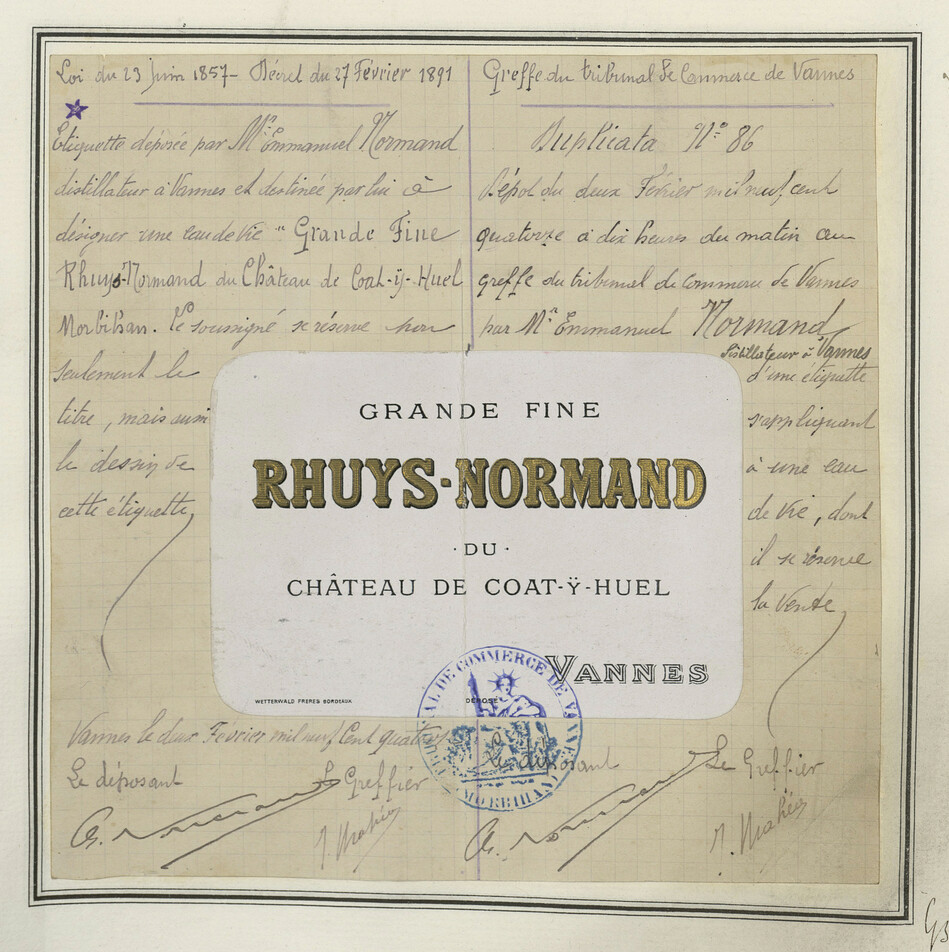 Loi du 23 Juin 1857 - Décret du 27 Février 1891
Etiquette déposée par Mr Emmanuel Normand
distillateur à Vannes et destinée par lui à
désigner une eau de vie "Grande Fine
Rhuys-Normand du Château de Coat-ÿ-Huel
Morbihan. Le soussigné se réserve non
seulement le
titre, mais aussi
le dessin de
cette étiquette
Vannes le deux Février mil neuf Cent quatorze
Le déposant
Le Greffier
J. Mahéo
Greffe du tribunal de Commerce de Vannes
Duplicata No: 86
Dépôt du deux Février mil neuf cent
quatorze à dix heures du matin au
greffe du tribunal de commerce de Vannes
par Mr Emmanuel Normand
Distillateur à Vannes
d'une étiquette
s'appliquant
à une eau
de Vie, dont
il se réserve
la Vente
Le déposant
Le Greffier
J. Mahéo
GRANDE FINE
RHUYS-NORMAND
·DU·
CHÂTEAU DE COAT-Ÿ-HUEL
VANNES
WETTERWALD FRÈRES BORDEAUX
DÉPOSÉ
TRIBUNAL DE COMMERCE DE VANNES
MORBIHAN